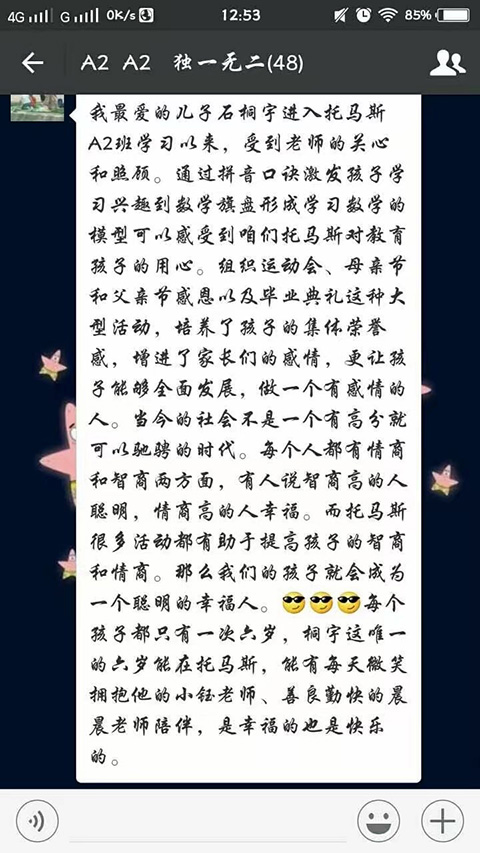 4G G 0K/s 12:53 85%
A2 A2 独一无二(48)
我最爱的儿子石桐宇进入托马斯
A2班学习以来，受到老师的关心
和照顾。通过拼音口诀激发孩子学
习兴趣到数学旗盘形成学习数学的
模型可以感受到咱们托马斯对教育
孩子的用心。组织运动会、母亲节
和父亲节感恩以及毕业典礼这种大
型活动，培养了孩子的集体荣誉
感，增进了家长们的感情，更让孩
子能够全面发展，做一个有感情的
人。当今的社会不是一个有高分就
可以驰骋的时代。每个人都有情商
和智商两方面，有人说智商高的人
聪明，情商高的人幸福。而托马斯
很多活动都有助于提高孩子的智商
和情商。那么我们的孩子就会成为
一个聪明的幸福人。😎😎😎每个
孩子都只有一次六岁，桐宇这唯一
的六岁能在托马斯，能有每天微笑
拥抱他的小钰老师、善良勤快的晨
晨老师陪伴，是幸福的也是快乐
的。